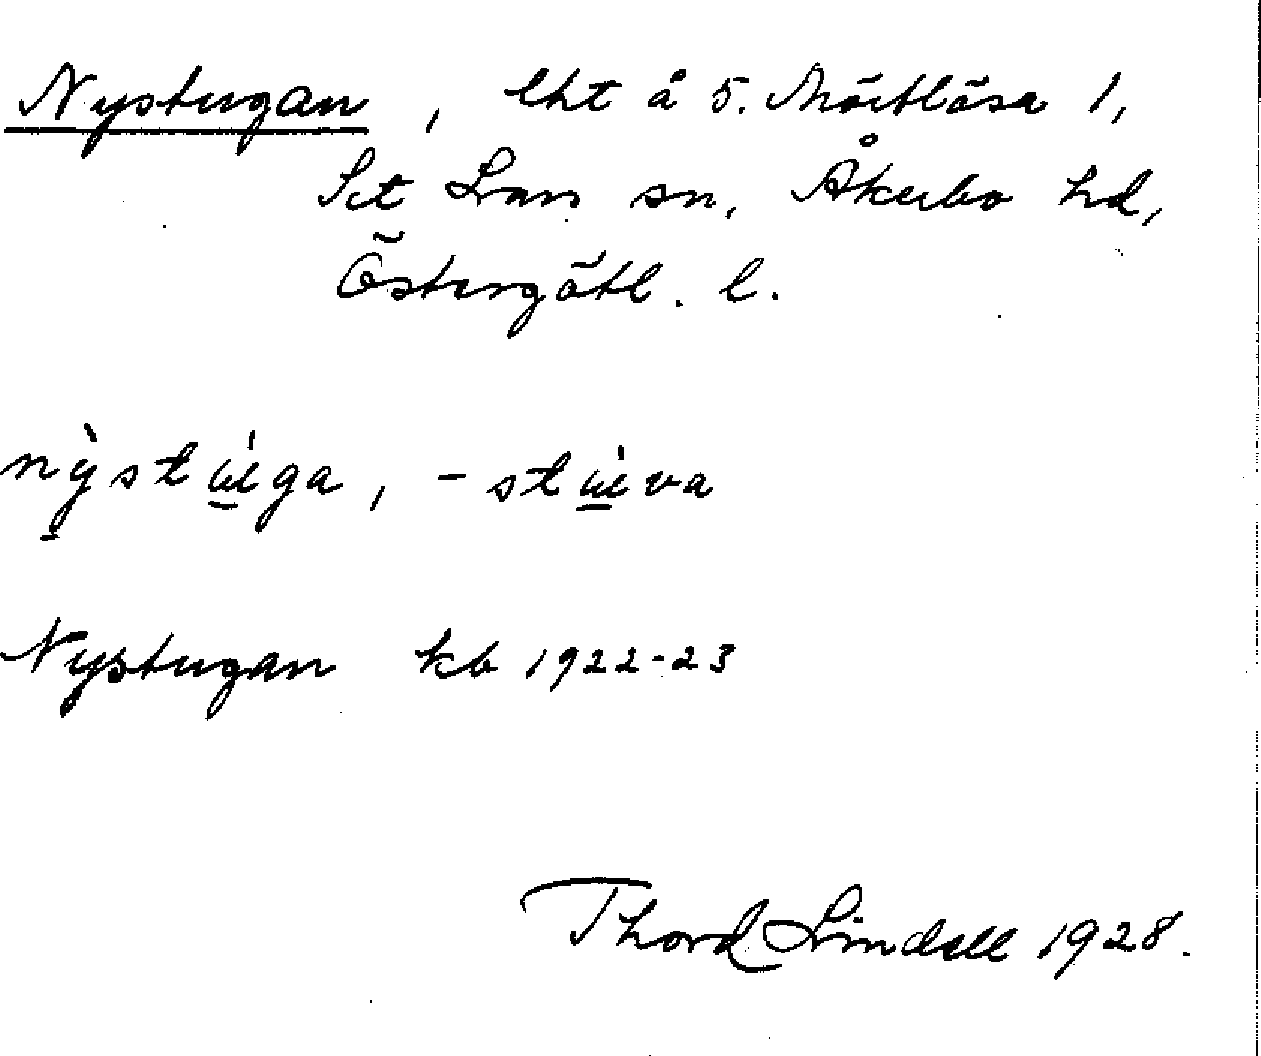 Nystugan, lht å S. Mörtlösa 1,
Sct Lars sn, Åkerbo hd,
Östergötl. l.
nystuga, -stuva
Nystugan kb 1922-23
Thord Lindell 1928.